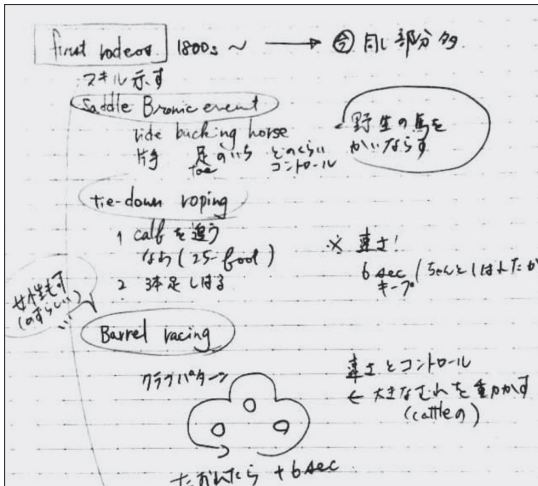 first rodeos 1800s ~ → 今 同じ部分多
スキル示す
Saddle Bronic event
ride bucking horse
片手 足のいち どのくらい
toe コントロール
野生の馬を
かいならす
tie-down roping
1 calf を追う
なわ (25-foot)
2 3本足しばる
※ 速さ!
6 sec (ちゃんとしばれたか
キープ
女性もす
Barrel racing
クラブパターン
速さとコントロール
← 大きなむれを動かす
(cattleの)
たおれたら +6sec